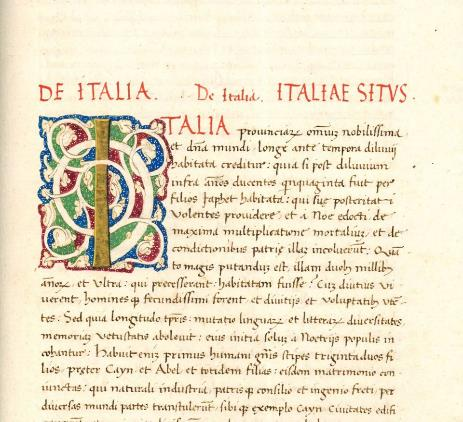 DE ITALIA. De Italia. ITALIAE SITVS.
ITALIA prouinciaꝝ omniū nobilissima
et dña mundi longe ante tempora diluuij
habitata creditur: quia si post diluuium
infra años ducentos quiquaginta fuit per
filios Japhet habitata: qui suę posteritati
Volentes prouidere et a Noe edocti de
maxima multiplicatione mortaliuꝫ, et de
condictionibus patrię illaꝫ incoluerūt: Quā
to magis putanduꝫ est, illam duobꝫ millibꝫ
añoꝝ, et Vltra: qui precesserant: habitatam fuisse: Cuꝫ diutius vi
uerent homines, et fecundissimi forent et diuitijs et Voluptatibꝫ
tes: Sed quia longitudo tpris: mutatio linguaꝝ, et litteraꝝ diuersitates
memoriaꝫ Vetustatis aboleuit: eius initia soluꝫ a Noetrijs populis in
cohantur: Habuit eniꝫ primus humani gñis stipes triginta duos fi
lios pręter Cayn et Abel et totidem filias: eisdem matrimonio con
iunctas: qui naturali industria, patrisqꝫ consilio et ingenio freti, per
diuersas mundi partes transtulerūt sibiqꝫ exemplo Cayn Ciuitates edifi